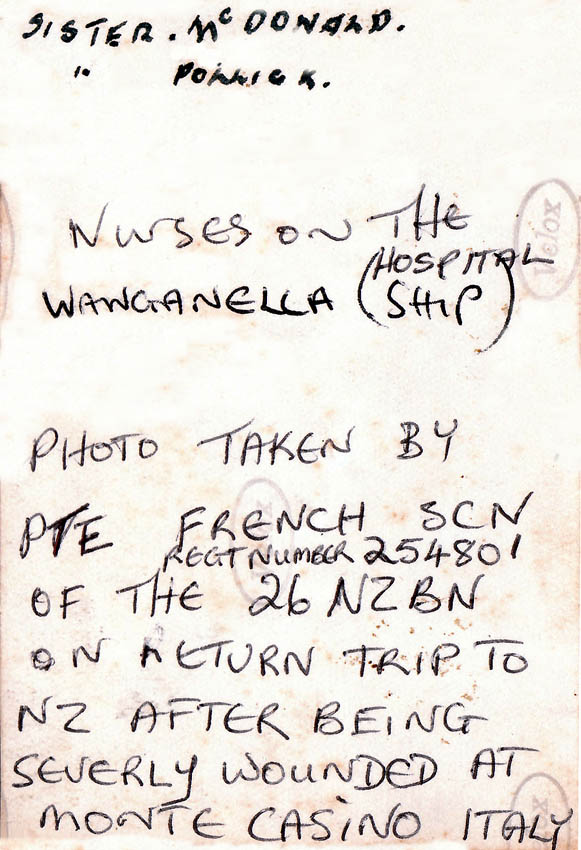 SISTER. McDONALD.
" POLLICK.
NURSES ON THE
WANGANELLA (HOSPITAL SHIP)
Velox
PHOTO TAKEN BY
PTE FRENCH SCN
REGT NUMBER 254801
OF THE 26 NZBN
ON RETURN TRIP TO
NZ AFTER BEING
SEVERLY WOUNDED AT
MONTE CASINO ITALY